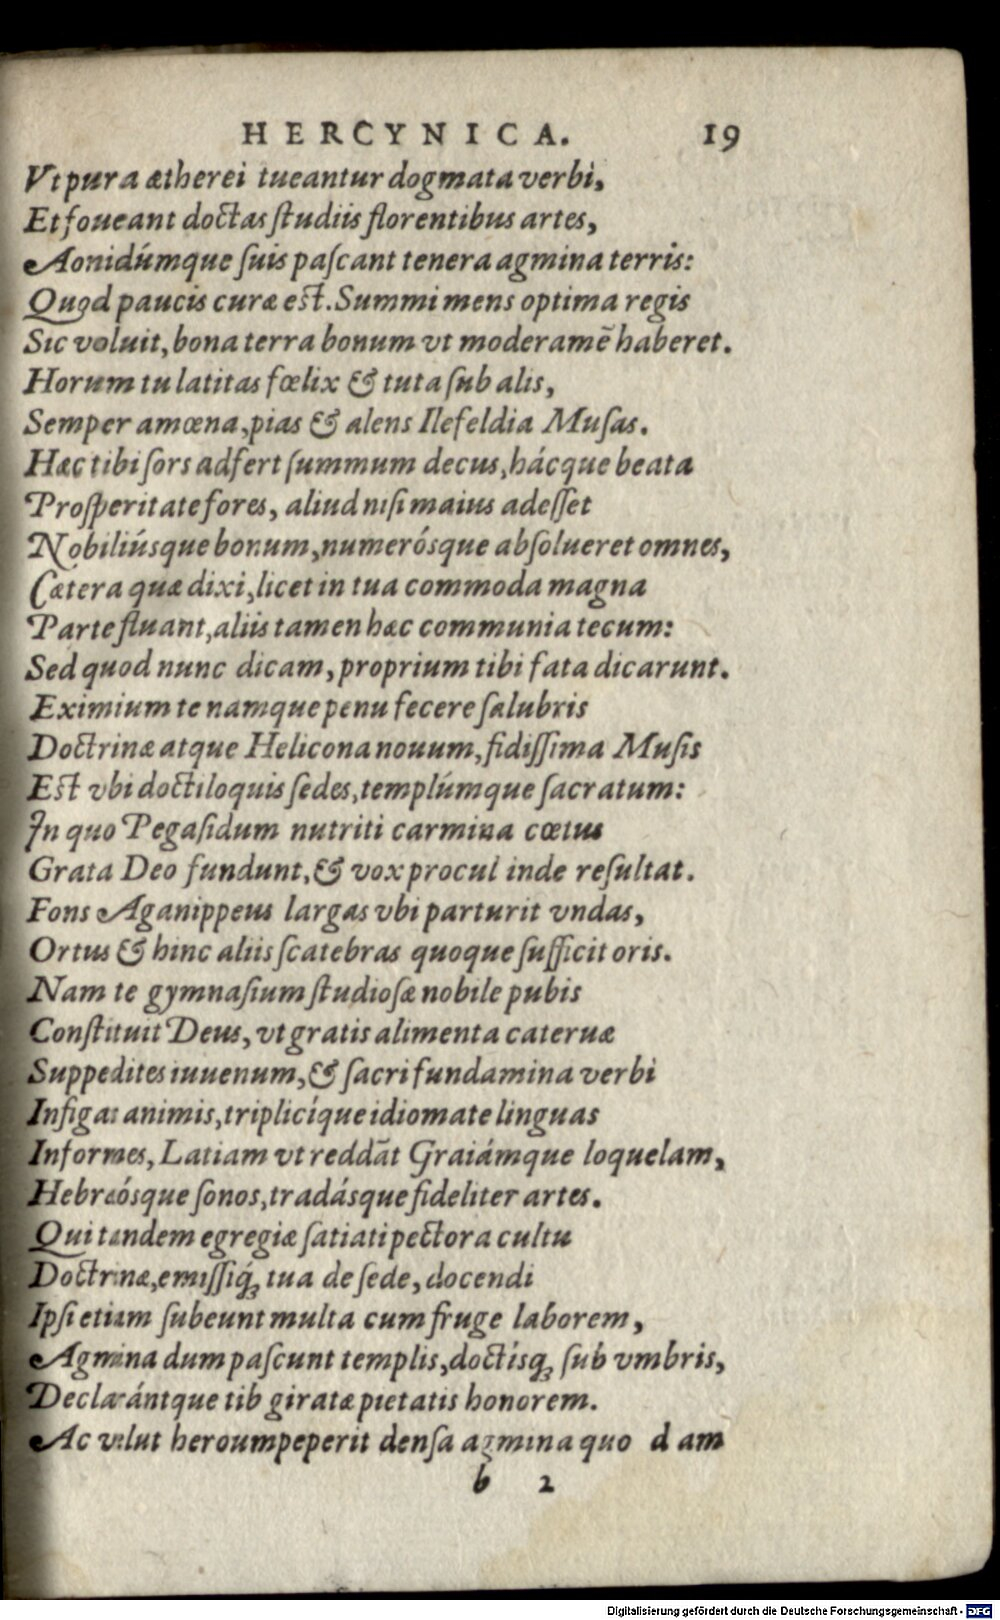 HERCYNICA. 19
Vt pura ætherei tueantur dogmata verbi,
Et foueant doctas ſtudiis florentibus artes,
Aonidúmque ſuis paſcant tenera agmina terris:
Quod paucis curæ eſt. Summi mens optima regis
Sic voluit, bona terra bonum vt moderamē haberet.
Horum tu latitas fœlix & tuta ſub alis,
Semper amœna, pias & alens Ilefeldia Muſas.
Hæc tibi ſors adfert ſummum decus, hácque beata
Proſperitate fores, aliud niſi maius adeſſet
Nobiliúsque bonum, numerósque abſolueret omnes,
Cætera quæ dixi, licet in tua commoda magna
Parte fluant, aliis tamen hæc communia tecum:
Sed quod nunc dicam, proprium tibi fata dicarunt.
Eximium te namque penu fecere ſalubris
Doctrinæ atque Helicona nouum, fidiſſima Muſis
Eſt vbi doctiloquis ſedes, templúmque ſacratum:
In quo Pegaſidum nutriti carmina cœtus
Grata Deo fundunt, & vox procul inde reſultat.
Fons Aganippeus largas vbi parturit vndas,
Ortus & hinc aliis ſcatebras quoque ſufficit oris.
Nam te gymnaſium ſtudioſæ nobile pubis
Conſtituit Deus, vt gratis alimenta cateruæ
Suppedites iuuenum, & ſacri fundamina verbi
Infigas animis, triplicíque idiomate linguas
Informes, Latiam vt reddāt Graiámque loquelam,
Hebræósque ſonos, tradásque fideliter artes.
Qui tandem egregiæ ſatiati pectora cultu
Doctrinæ, emiſſiq́ꝫ tua de ſede, docendi
Ipſi etiam ſubeunt multa cum fruge laborem,
Agmina dum paſcunt templis, doctísqꝫ ſub vmbris,
Declarántque tib giratæ pietatis honorem.
Ac velut heroum peperit denſa agmina quo d am
b 2
Digitalisierung gefördert durch die Deutsche Forschungsgemeinschaft - DFG